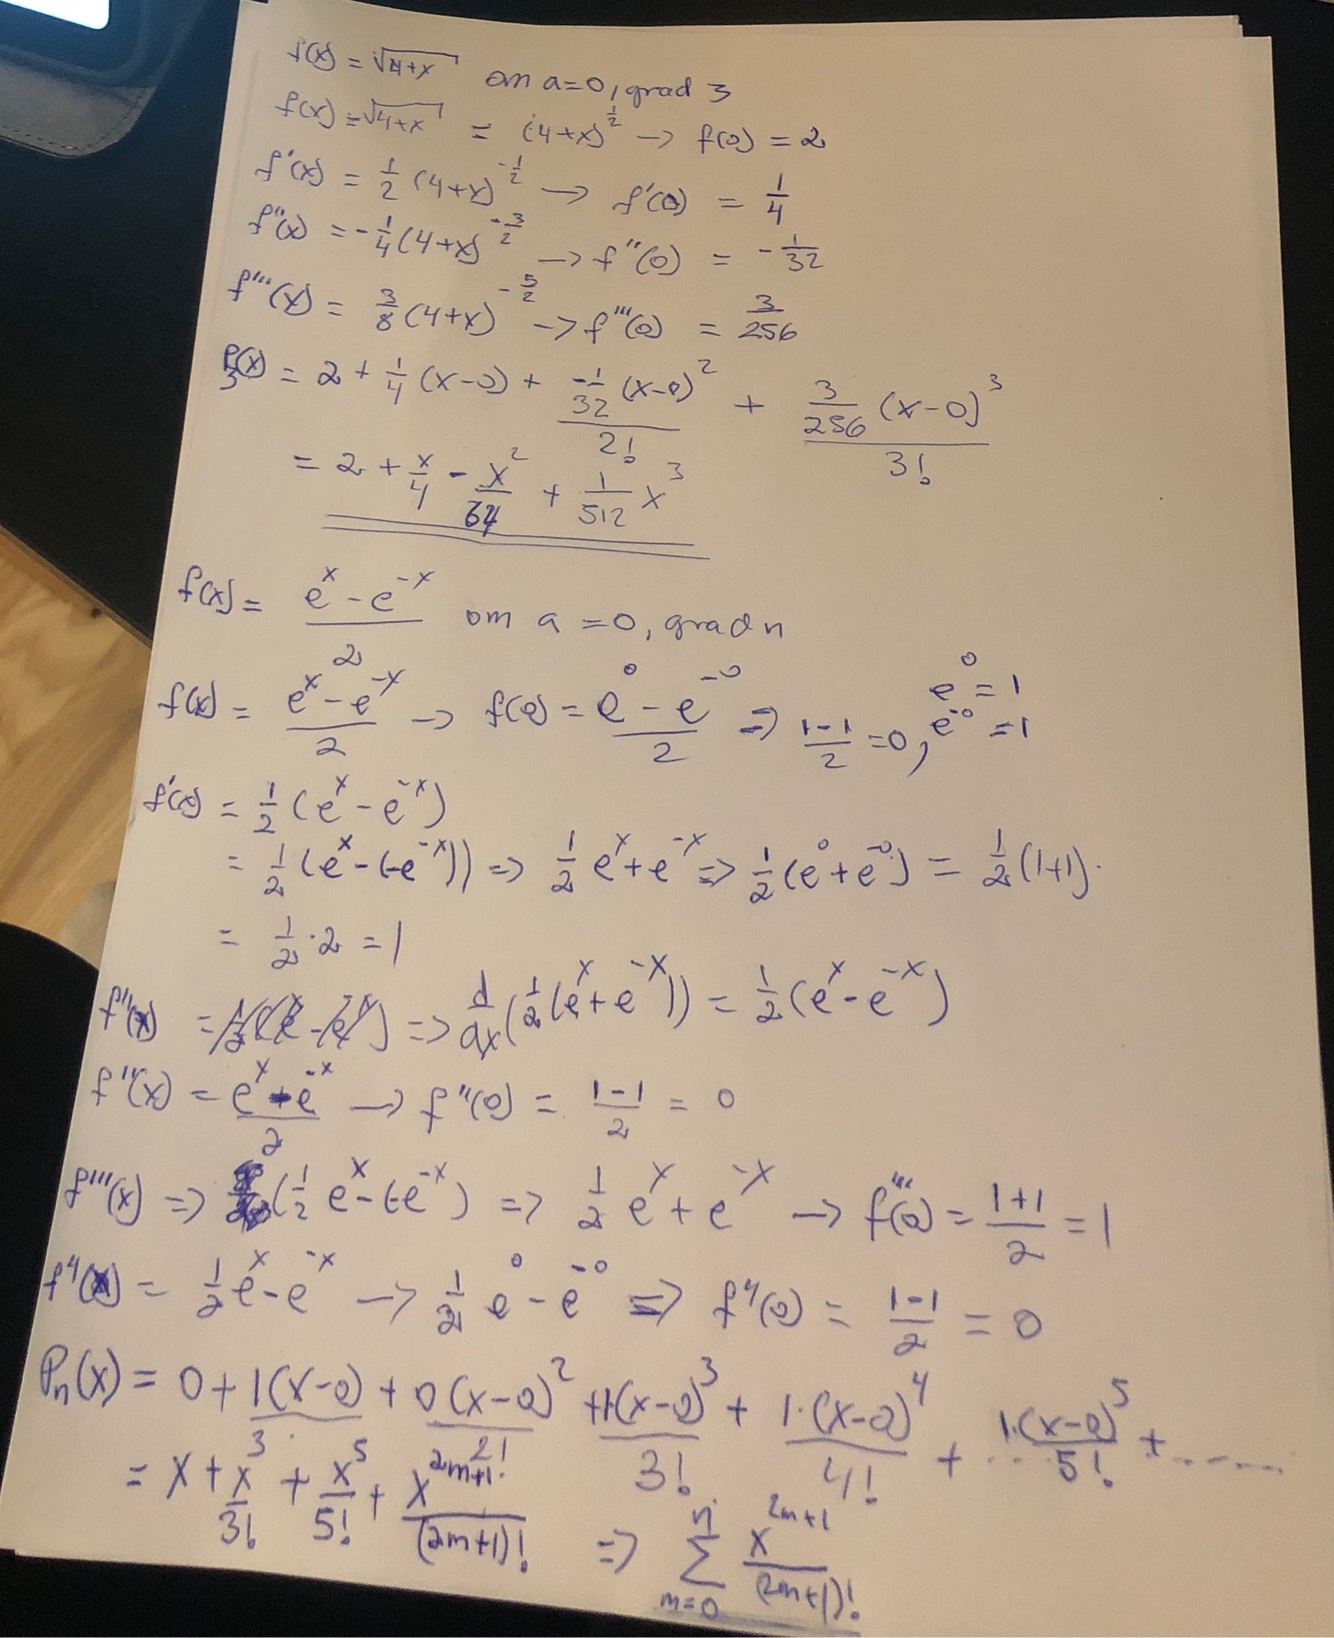 f(x) = √4+x om a=0, grad 3
f(x) = √4+x = (4+x)^{1/2} → f(0) = 2
f'(x) = 1/2 (4+x)^{-1/2} → f'(0) = 1/4
f''(x) = -1/4 (4+x)^{-3/2} → f''(0) = -1/32
f'''(x) = 3/8 (4+x)^{-5/2} → f'''(0) = 3/256
P_3(x) = 2 + 1/4 (x-0) + (-1/32 (x-0)^2)/2! + (3/256 (x-0)^3)/3!
= 2 + x/4 - x^2/64 + 1/512 x^3
f(x) = (e^x - e^{-x})/2 om a = 0, grad n
f(x) = (e^x - e^{-x})/2 → f(0) = (e^0 - e^{-0})/2 ⇒ (1-1)/2 = 0, e^0 = 1
e^{-0} = 1
f'(x) = 1/2 (e^x - e^{-x})
= 1/2 (e^x - (-e^{-x})) ⇒ 1/2 e^x + e^{-x} ⇒ 1/2 (e^0 + e^{-0}) = 1/2 (1+1).
= 1/2 · 2 = 1
f''(x) = ⇒ d/dx (1/2 (e^x + e^{-x})) = 1/2 (e^x - e^{-x})
f''(x) = (e^x - e^{-x})/2 → f''(0) = (1-1)/2 = 0
f'''(x) ⇒ (1/2 e^x - (-e^{-x}) ⇒ 1/2 e^x + e^{-x} → f'''(0) = (1+1)/2 = 1
f^4(x) = 1/2 e^x - e^{-x} → 1/2 e^0 - e^{-0} ⇒ f^4(0) = (1-1)/2 = 0
P_n(x) = 0 + 1(x-0) + 0(x-0)^2/2! + 1·(x-0)^3/3! + 1·(x-0)^4/4! + ... 1·(x-0)^5/5! + ......
= x + x^3/3! + x^5/5! + x^{2m+1}/(2m+1)! ⇒ ∑_{m=0}^{n} x^{2m+1}/(2m+1)!